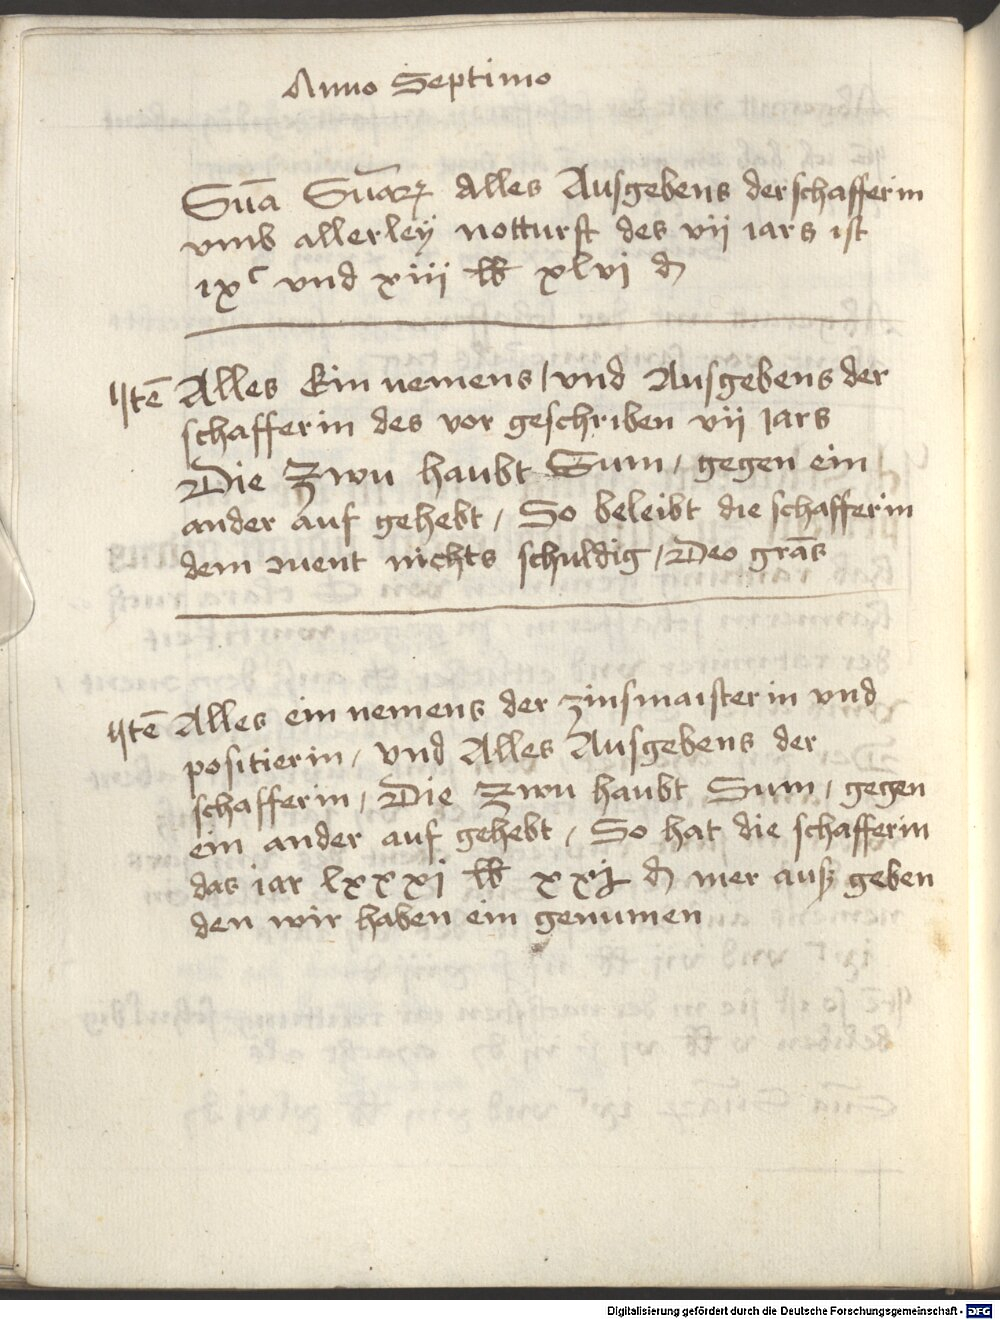 Anno Septimo
Suā Suāꝝ alles Ausgebens der schafferin
vmb allerleÿ notturft des vij iars ist
ixᶜ vnd xiij lb xlvj d
Itē Alles Ein nemens / vnd Ausgebens der
schafferin des vor geschriben vij Jars
Die Zwu haubt Sum / gegen ein
ander auf gehebt / So beleibt die schafferin
dem nichts schuldig / Deo grās
Itē Alles ein nemens der zinsmaisterin vnd
positierin / vnd Alles Ausgebens der
schafferin / Die Zwu haubt Sum / gegen
ein ander auf gehebt / So hat die schafferin
das iar lxxxj lb d mer auß geben
den wir haben ein genumen
Digitalisierung gefördert durch die Deutsche Forschungsgemeinschaft - DFG